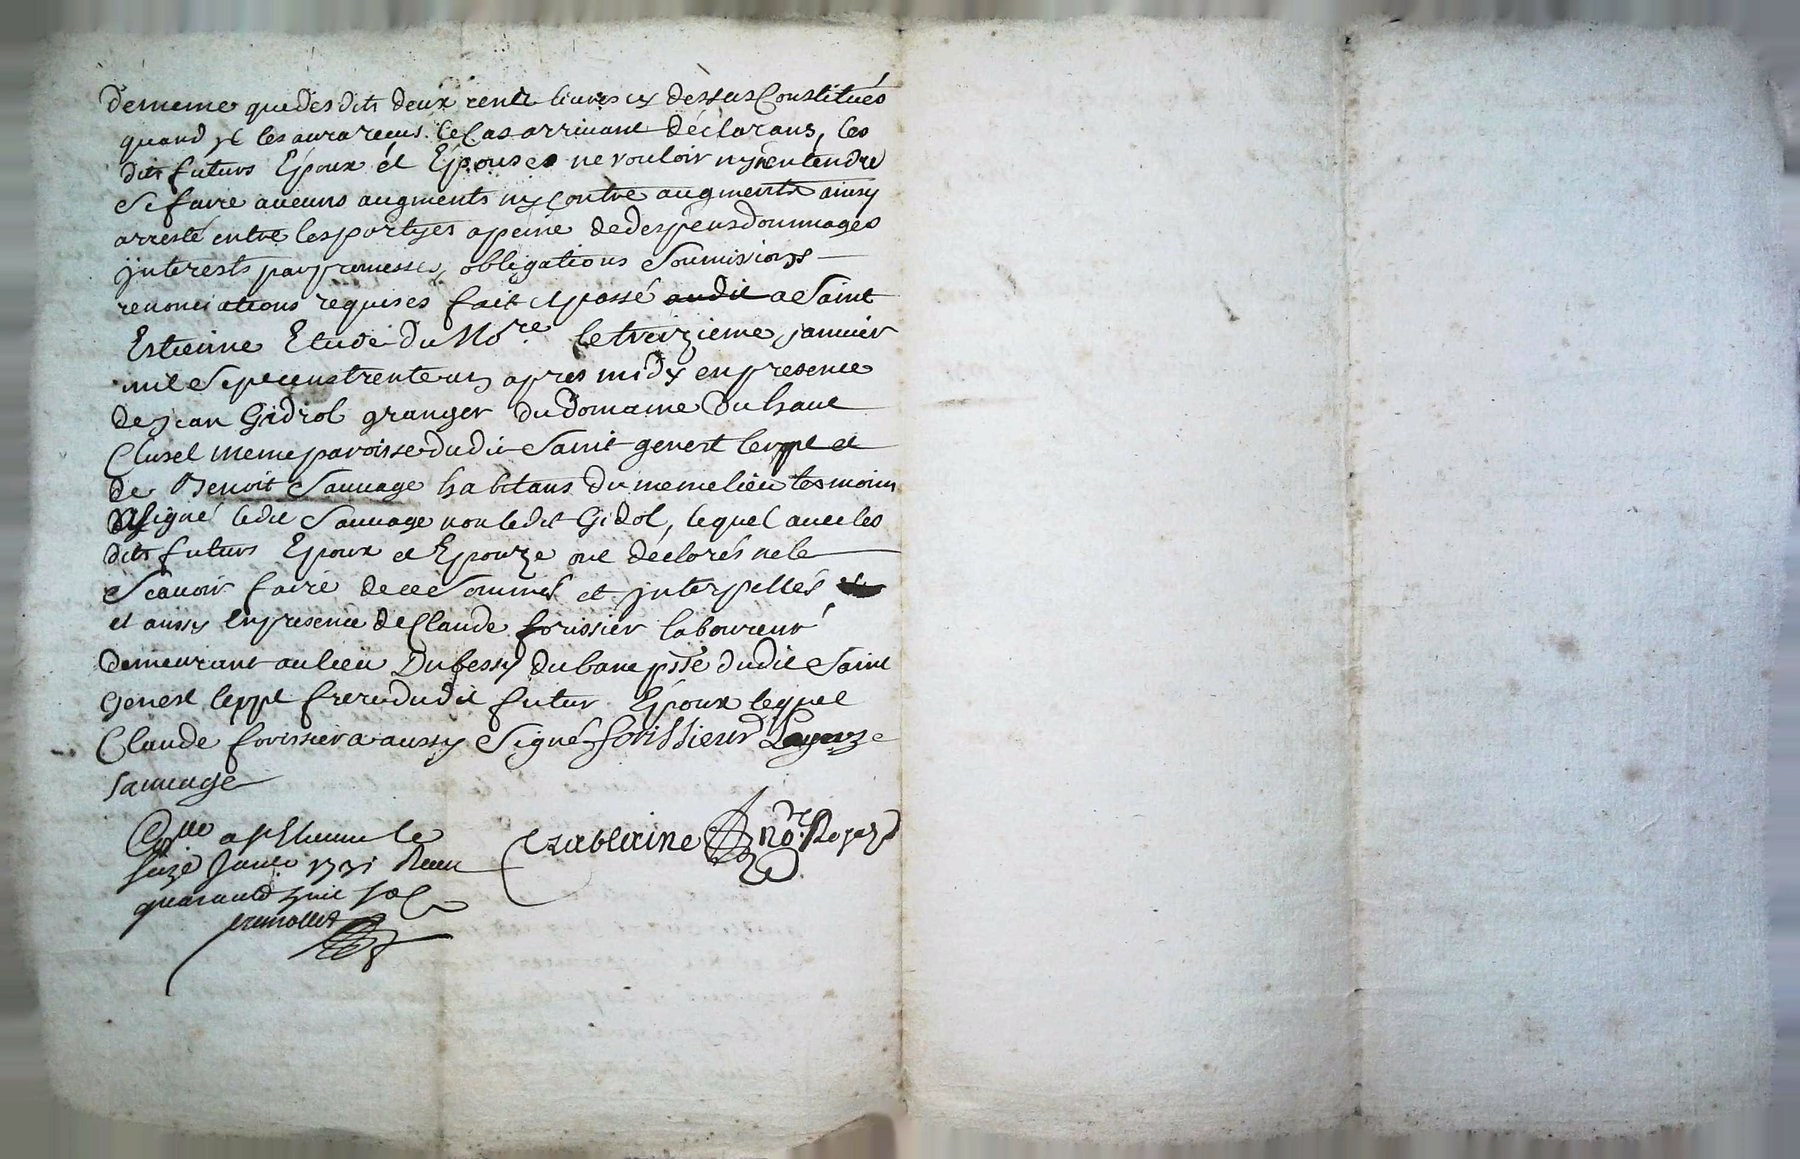 dememe que des dits deux cents livres cy dessus Constitués
quand jl les aura reçeus. le Cas arrivant déclarans, les
dits futurs Epoux et Epouses ne vouloir ny entendre
se faire aucuns augments ny Contre augments ainsy
arresté entre les partyes a peine de despens dommages
jnterests par promesses, obligations Soumissions
renonciations requises fait et passé audit a Saint
Estienne Etude du No.re le treizieme janvier
mil Sept cens trente un apres midy en presence
de jean Gidrol granger du domaine du haut
Clusel meme paroisse dudit Saint genest lerpt et
de Benoit Sauvage habitans du meme lieu tesmoins
a signé ledit Sauvage non ledit Gidol, lequel avec les
dits futurs Epoux et Epouze ont déclarés ne le
Scavoir faire de ce Sommés et jnterpellés
et aussy En presence de Claude forissier laboureur
demeurant au lieu Du fessy du banc psse dudit Saint
Genest lerpt frere dudit futur Epoux lequel
Claude forissier a aussy Signé forissieur
sauvage
Cllé a st Etienne le
seize Janv. 1731 Reçu
quarante huit sols
Chablaine No.re Royal